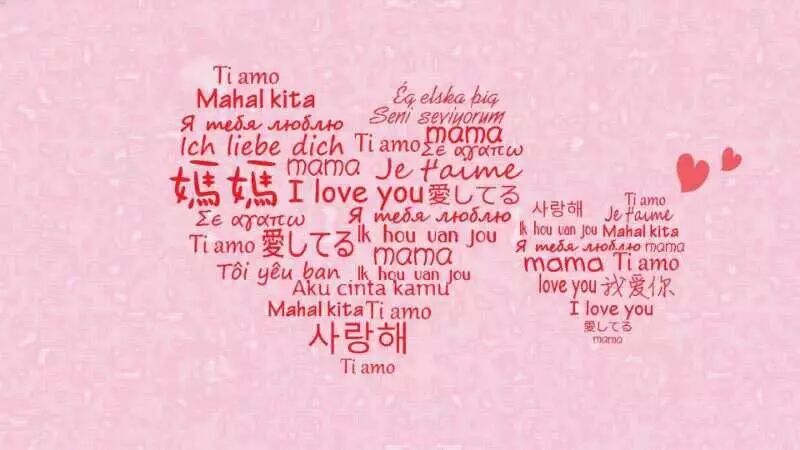 Ti amo
Mahal kita
Ég elska þig
Seni seviyorum
Я тебя люблю
mama
Ich liebe dich
Ti amo
Σε αγαπω
mama
Je t'aime
媽媽
I love you
愛してる
Σε αγαπω
Я тебя люблю
Ti amo
愛してる
Ik hou van jou
mama
Tôi yêu ban
Ik hou van jou
Aku cinta kamu
Mahal kita
Ti amo
사랑해
Ti amo
사랑해
Ti amo
Je t'aime
Ik hou van jou
Mahal kita
Я тебя люблю
mama
mama
Ti amo
love you
我愛你
I love you
愛してる
mama